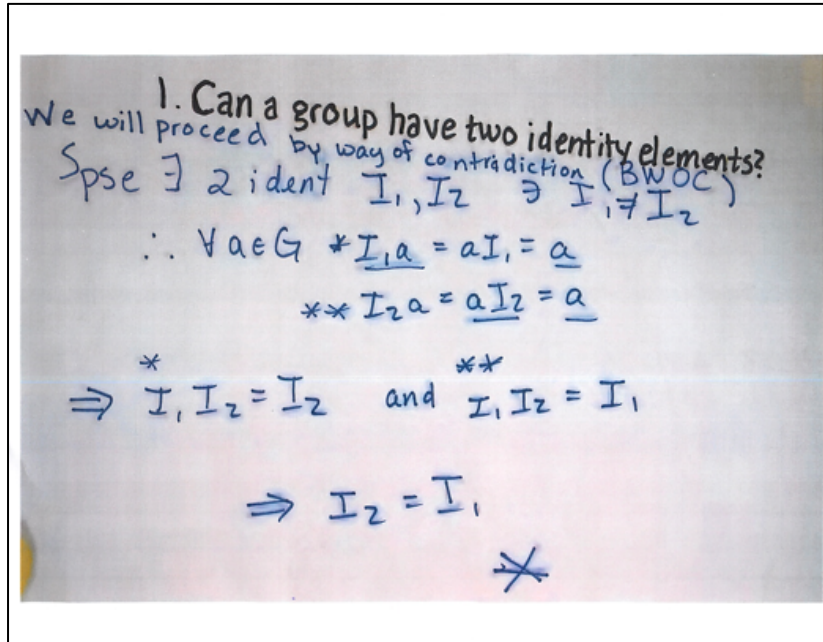 1. Can a group have two identity elements?
We will proceed by way of contradiction (BWOC)
Spse ∃ 2 ident I₁, I₂ ∋ I₁ ≠ I₂
∴ ∀ a ∈ G * I₁a = aI₁ = a
** I₂a = aI₂ = a
* **
⇒ I₁ I₂ = I₂ and I₁ I₂ = I₁
⇒ I₂ = I₁
※